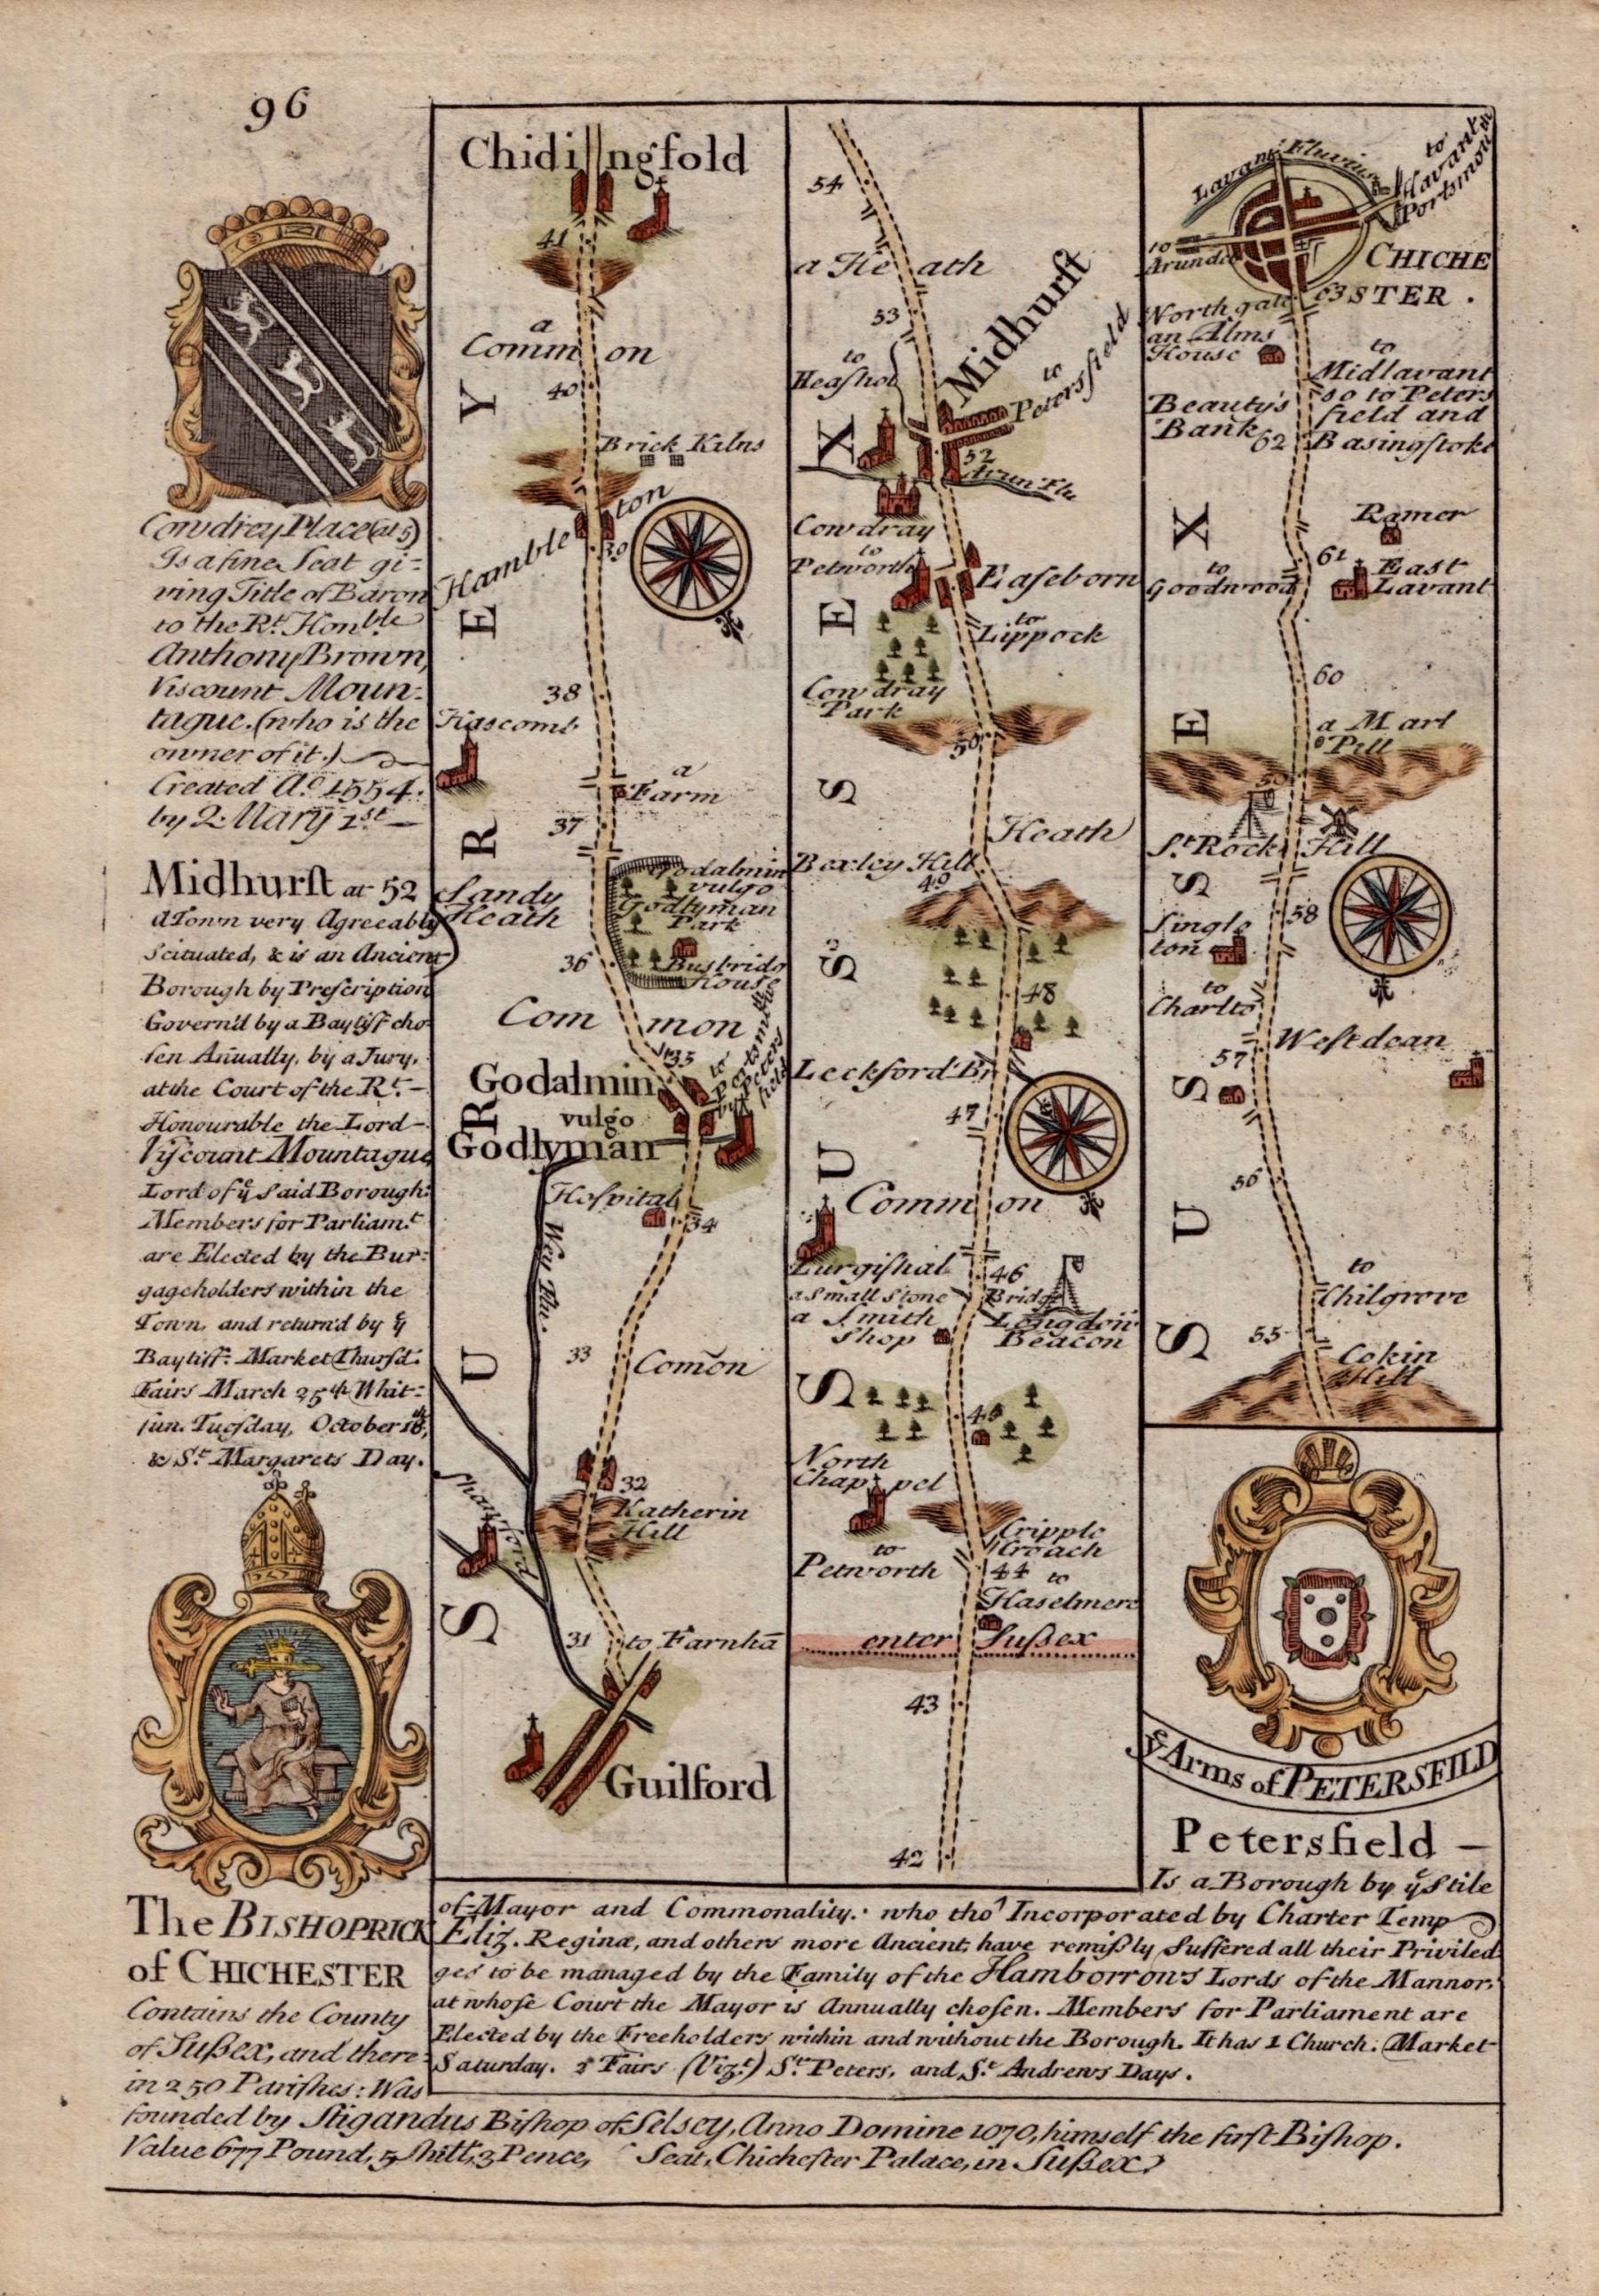 96
Cowdrey Place (at 5)
Is a fine Seat gi=
ving Title of Baron
to the Rt. Honble
Anthony Brown,
Viscount Moun=
tague. (who is the
owner of it.)
Created Ao. 1554.
by Q. Mary 1st
Midhurst at 52
a Town very Agreeably
Scituated, & is an Ancient
Borough by Prescription
Govern'd by a Bayliff cho=
sen Anually, by a Jury,
at the Court of the Rt.
Honourable the Lord
Viscount Mountague
Lord of ye said Borough:
Members for Parliamt
are Elected by the Bur=
gageholders within the
Town, and return'd by ye
Bayliff: Market Thursd:
Fairs March 25th Whit=
sun. Tuesday, October 18th,
& St. Margarets Day.
The BISHOPRICK
of CHICHESTER
Contains the County
of Sußex, and there=
in 250 Parishes: Was
founded by Stigandus Bishop of Selsey, Anno Domine 1070, himself the first Bishop.
Value 677 Pound, 5 shill, 3 Pence, Seat, Chichester Palace, in Sußex.
Chidingfold
41
a
Common
40
Brick Kilns
Hambleton
39
38
Hascomb
a
Farm
37
Sandy
Heath
Godalmin
vulgo
Godlyman
Park
36
Busbridg
House
Common
35
to
Portsmouth
by Peters
field
Godalmin
vulgo
Godlyman
Hospital
34
Wey Flu.
33
Comōn
32
Katherin
Hill
Shanford
31
to Farnhā
Guilford
SURREY
54
a Heath
53
to
Heashot
Midhurst
to
Petersfield
52
Arun Flu
Cowdray
to
Petworth
Easeborn
to
Lippock
Cowdray
Park
50
Heath
Boxley Hill
49
48
Leckford Br
47
Common
Lurgishal
46
a small Stone Bridg
a Smith
Shop
Longdon
Beacon
45
North
Chappel
Cripple
Croach
to
Petworth
44
to
Haselmere
enter Sußex
43
42
SUSSEX
Lavant Fluvius
to
Havant
Portsmouth
to
Arundel
CHICHE
STER.
63
Northgate
an Alms
House
to
Midlavant
so to Peters
field and
Basingstoke
Beauty's
Bank
62
Ramer
61
East
Lavant
to
Goodwood
60
a Marl
Pitt
59
St. Rocks Hill
58
Single
ton
to
Charlto
Westdean
57
56
to
Chilgrove
55
Cokin
Hill
SUSSEX
ye Arms of PETERSFEILD
Petersfield
Is a Borough by ye Stile
of Mayor and Commonality: who tho' Incorporated by Charter Temp
Eliz. Reginæ, and others more Ancient, have remißly Suffered all their Priviled
ges to be managed by the Family of the Hamborrons Lords of the Mannor,
at whose Court the Mayor is Annually chosen. Members for Parliament are
Elected by the Freeholders within and without the Borough. It has 1 Church: Market
Saturday. 2 Fairs (Vizt.) St. Peters, and St. Andrews Days.